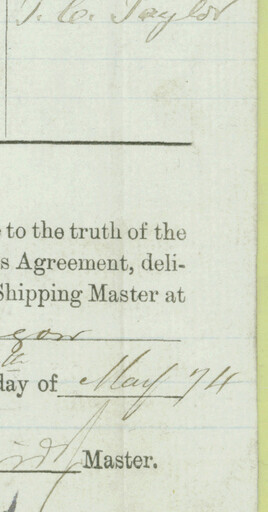 T. C. Taylor
to the truth of the
s Agreement, deli-
Shipping Master at
gow
th
day of May 74
Master.